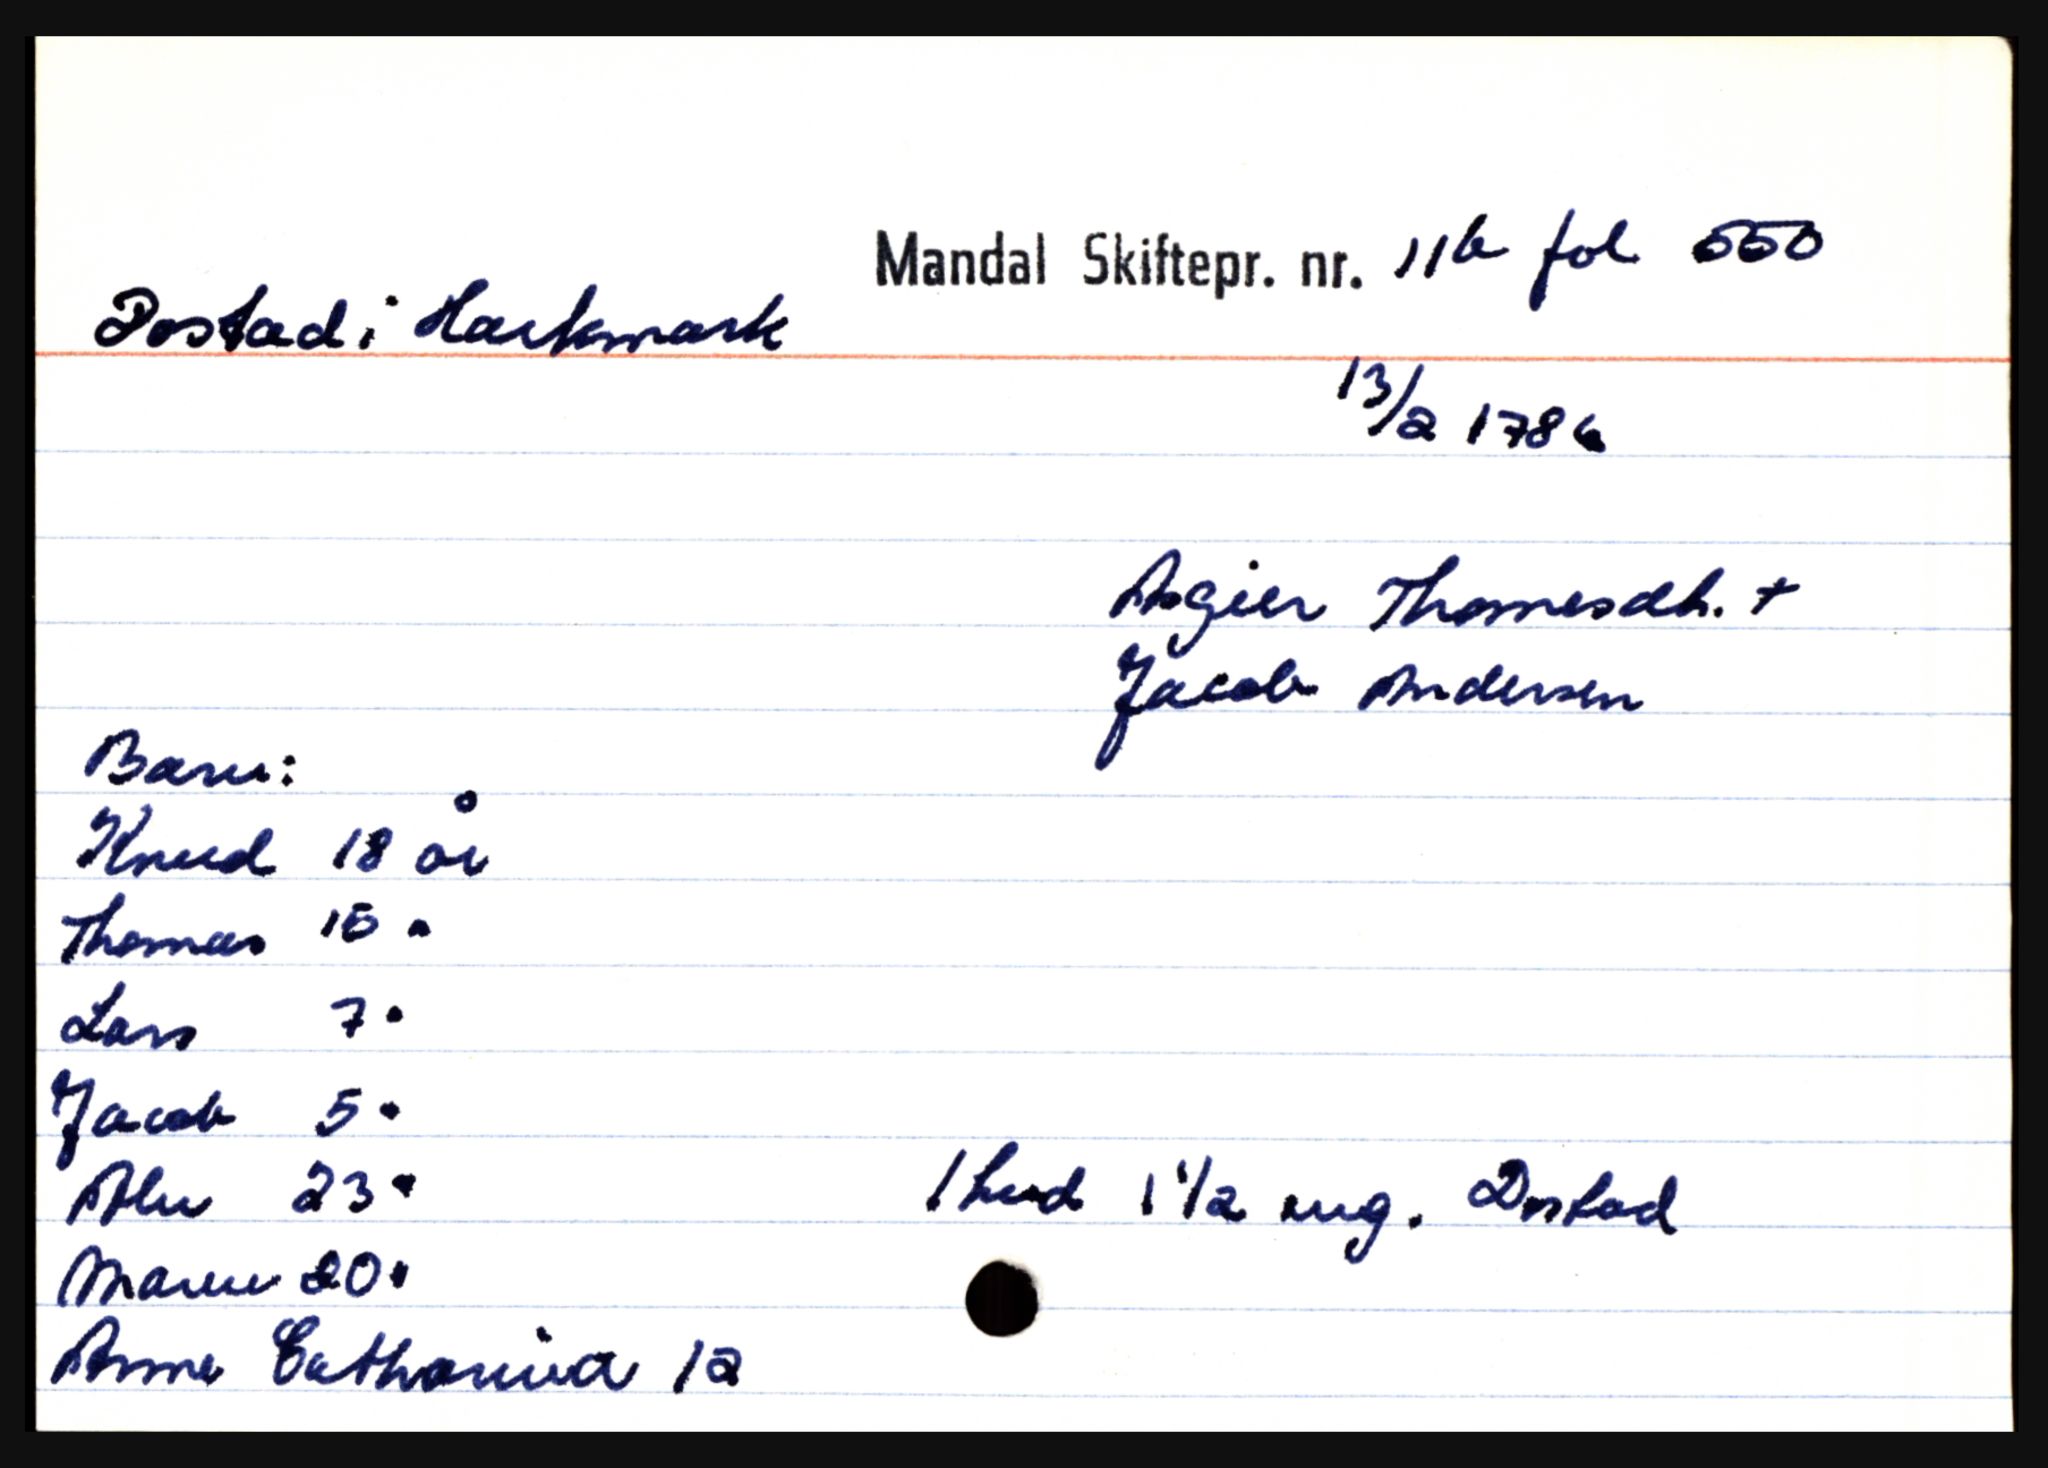 Mandal Skiftepr. nr. 11b fol 550
Dostad i Harkmark
13/2 1786
Asgier Thomesdh. +
Jacob Andersen
Barn:
Knud 18 år
Thomas 15 "
Lars 7 "
Jacob 5 "
Alu 23 "
1 hud 1 1/2 eng. Dostad
Maren 20 "
Anne Catharina 12